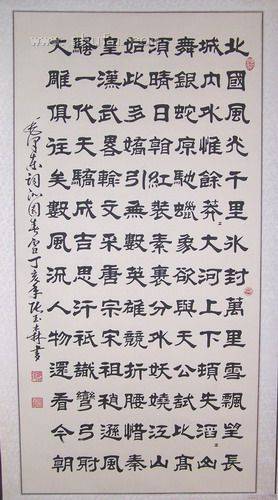 北國風光千里冰封萬里雪飄望長
城內外惟餘莽〻大河上下頓失滔〻山
舞銀蛇原馳蠟象欲與天公試比高
須晴日看紅裝素裹分外妖嬈江山
如此多嬌引無數英雄競折腰惜秦
皇漢武畧輸文采唐宗宋祖稍遜風
騷一代天驕成吉思汗祗識彎弓射
大雕俱往矣數風流人物還看今朝
毛澤東詞沁園春雪丁亥年張玉森書